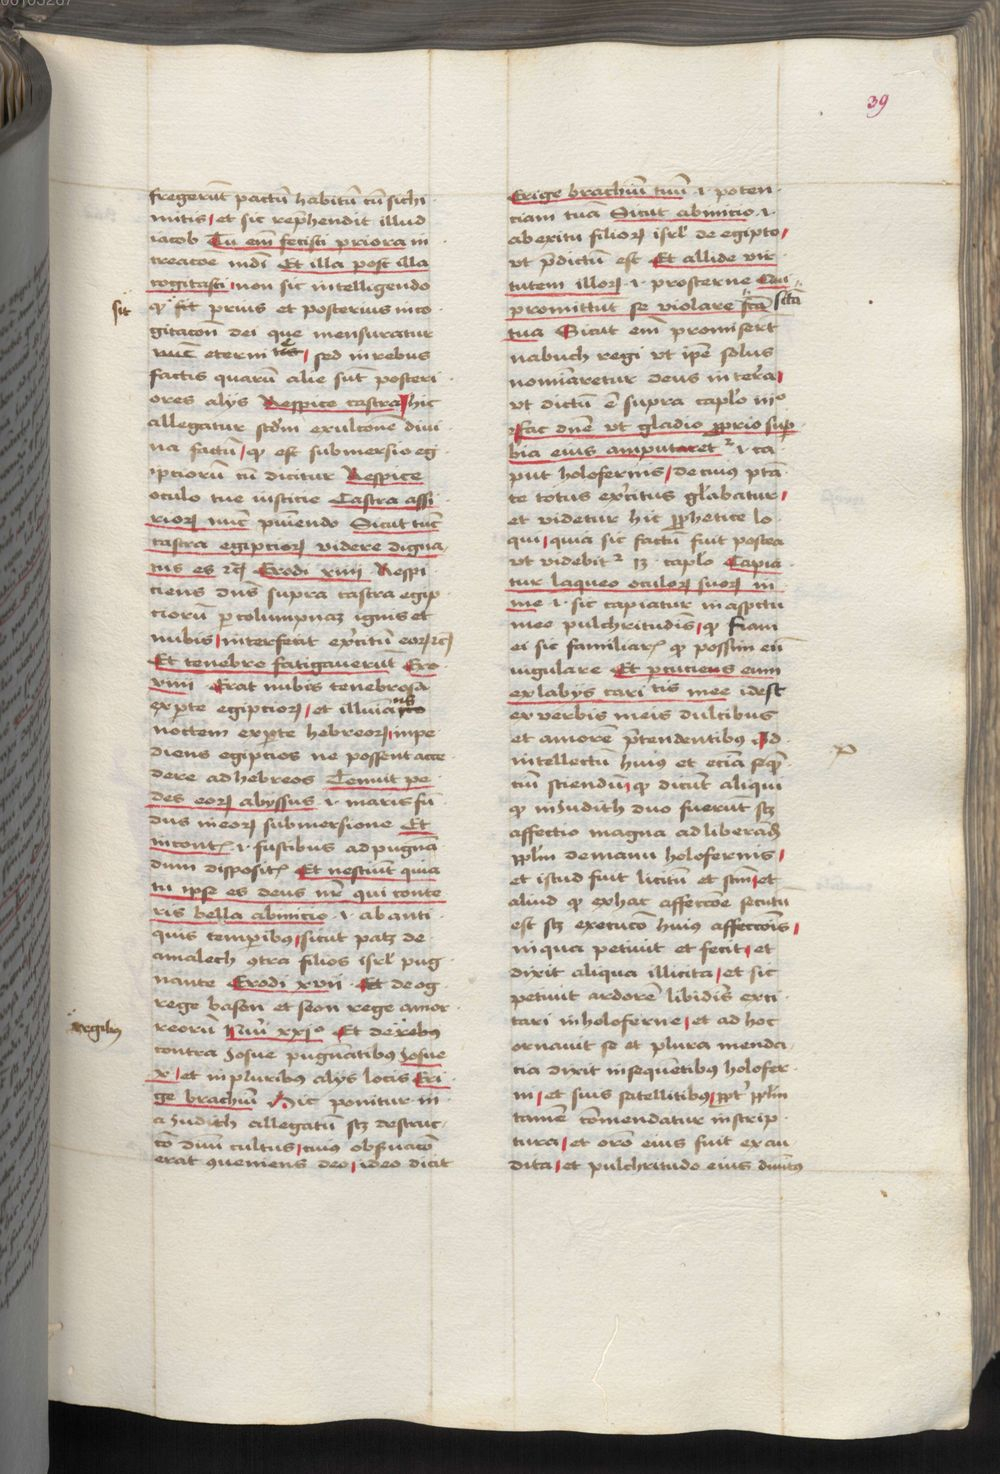 39
fregerūt pactū habitū cū sichi
mitis et sic rep̄hendit illud
iacob Tu em̄ fecisti priora in
creacōe mūdi Et illa post illa
cogitasti non sic intelligendo
sit
prius et posterius in co
gitacōn dei que mensuratur
nūc eterni tīs sed in rebus
factis quarū alie sūt posteri
ores alijs Respice castra hic
allegatur scd̄m exulcōnē diui
na factū qꝫ est submersio eg
ipciorū cū dicitur Respice
oculo tue iusticie Castra assi
rioꝝ nūc puniendo Sicut tūc
castra egipcioꝝ videre digna
tus es ⁊cꝫ Exodi xiiij Respi
ciens dn̄s supra castra egip
ciorū ꝑ columpnaꝫ ignis et
nubis interfecit exꝰcitū eoꝝ ⁊cꝫ
Et tenebre fatigauerūt Exo
xiiij Erat nubis tenebrosa
ex ꝑte egipcioꝝ et illuīans
noctem ex ꝑte hebreoꝝ impe
diens egipcios ne possent acce
dere ad hebreos Tenuit pe
des eoꝝ abyssus .i. maris fū
dus in eoꝝ submersione Et
in cont᷒ .i. fustibus ad pugnā
dum disposit᷒ Et nesciūt quia
tu ipse es deus nr̄ qui conte
ris bella ab inicio .i. ab anti
quis temporibꝰ sicut patꝫ de
amalech ꝯtra filios isrl̄ pug
nante Exodi xvij Et de og
rege bason et seon rege amor
reorū Nūi xxjº Et de rebus
regibꝰ
contra Josue pugnātibus Josue
x et in pluribus alijs locis Eri
ge brachiū Hic ponitur in
a Judith allegatū scꝫ destruc
cō diui cultus cuiꝰ obseruacō
erat ꝯueniens deo ideo dicit
Erige brachiū tuū .i. poten
ciam tuā Sicut ab inicio .i.
ab exitu filioꝝ isrl̄ de egipto
vt p̄dictū est Et allide vir
tutem illoꝝ .i. prosterne Qui
promittūt se violare sc̄a sc̄tā
tua Sicut em̄ promisert
nabuch regi vt ip̄e solus
nominaretur deus in terra
vt dictū ē supra caplo iijº
Fac dn̄e vt gladio ꝓprio suꝑ
bia eius amputaret᷒ .i. ca
put holofernis de cuiꝰ ptā
te totus exꝰcitus glabatur
et videtur hic ꝓphetice lo
qui quia sic factū fuit postea
vt videbit᷒ 13 caplo Capia
tur laqueo oculoꝝ suoꝝ in
me .i. sic capiatur in aspectu
meo pulchritudis qꝫ fiam
ei sic familiar᷒ qꝫ possim eū
iugulare Et ꝑcuciens eum
ex labijs cari tis mee idest
ex verbis meis dulcibus
et amore p̄tendentibꝰ Ad
intellectū huiꝰ et eciā seqꝫ
ciū sciendū qꝫ dicūt aliqui
qꝫ in Judith duo fuerūt scꝫ
affectio magna ad liberadꝫ
pp̄lm de manu holofernis
et istud fuit licitū et scm̄ et
aliud qꝫ ex hac affeccōe secutū
est scꝫ execucō huiꝰ affeccōis
in qua petiuit et fecit et
dixit aliqua illicita et sic
petiuit ardorē libidīs exci
tari in holoferne et ad hoc
ornauit se et plura menda
cia dixit in sequentibus holofer
ni et suis satellitibꝰ ꝓpt̄ pp̄lm
tamen cōmendatur in scrip
tura et orō eius fuit exau
dita et pulchritudo eius diuitꝰ